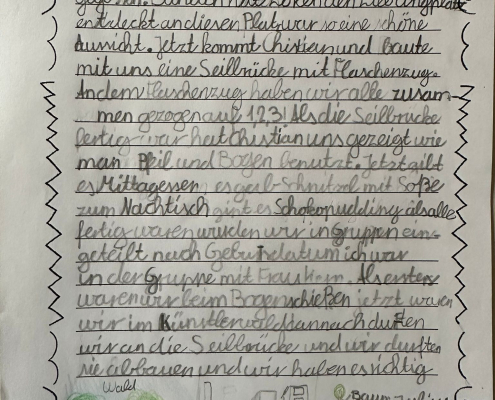 entdeckt an diesen Platz war so eine schöne
Aussicht. Jetzt kommt Christian und Baute
mit uns eine Seilbrücke mit Flaschenzug.
An dem Flaschenzug haben wir alle zusam-
men gezogen auf 1,2,3! Als die Seilbrücke
fertig war hat Christian uns gezeigt wie
man Pfeil und Bogen benutzt. Jetzt gibt
es Mittagessen es gab Schnitzel mit Soße
zum Nachtisch gint es Schokopudding als alle
fertig waren wurden wir in Gruppen ein-
geteilt nach Geburtdatum ich war
in der Gruppe mit Frau Als erstes
waren wir beim Bogenschießen jetzt waren
wir im Künstlerwald dannach durften
wir an die Seilbrücke und wir durften
sie abbauen und wir haben es richtig
Wald
Baum